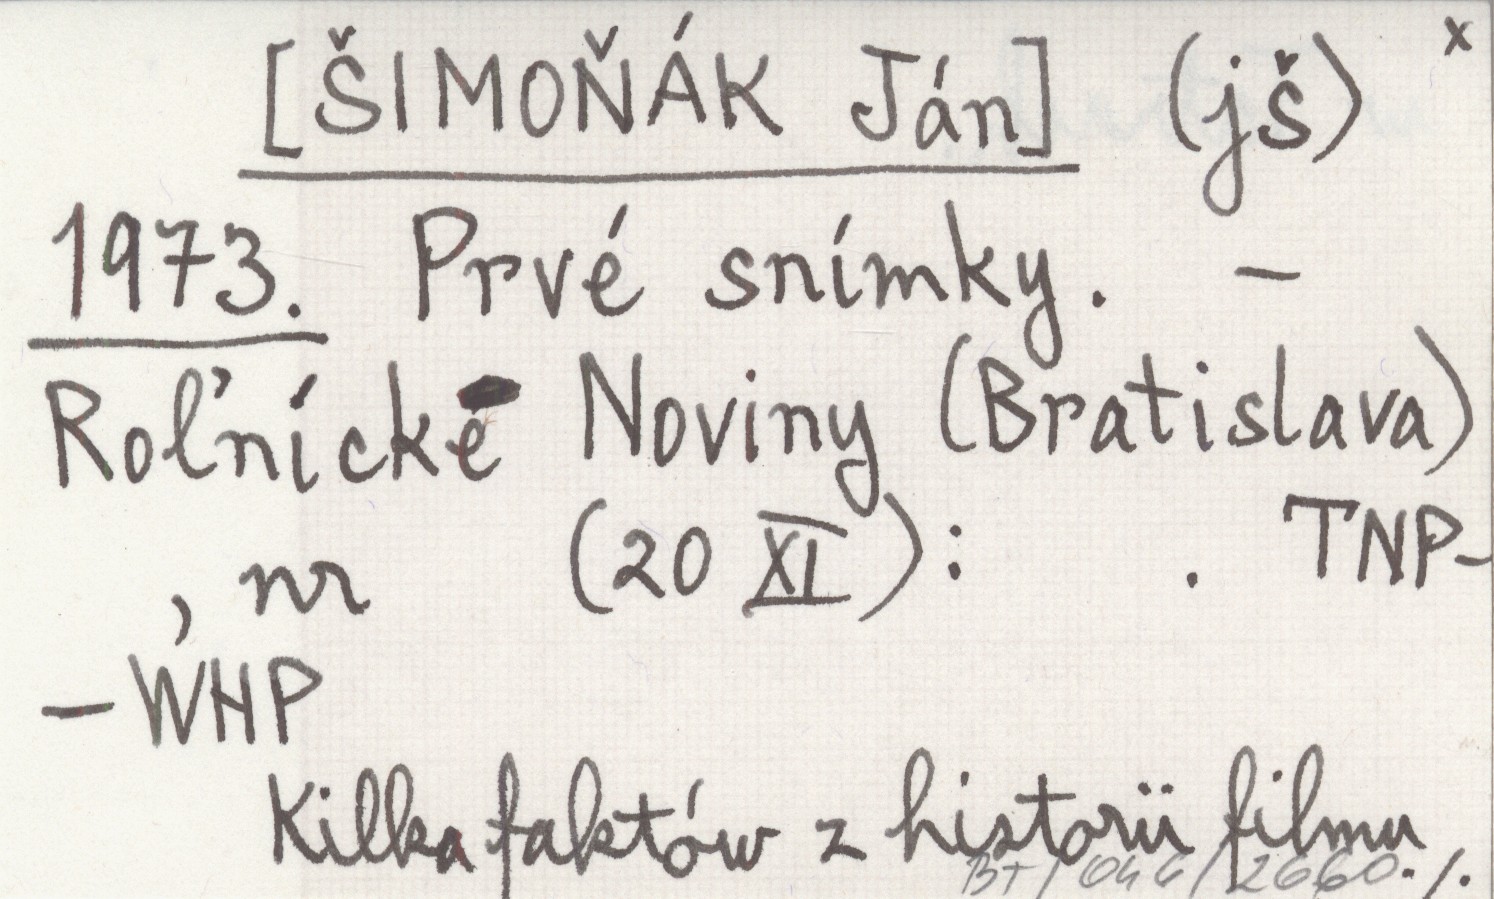 [ŠIMOŇÁK Ján] (jš) x
1973. Prvé snímky. –
Roľnícke Noviny (Bratislava)
, nr (20 XI): . TNP-
– WHP
Kilka faktów z historii filmu
BT/046/2660. /.